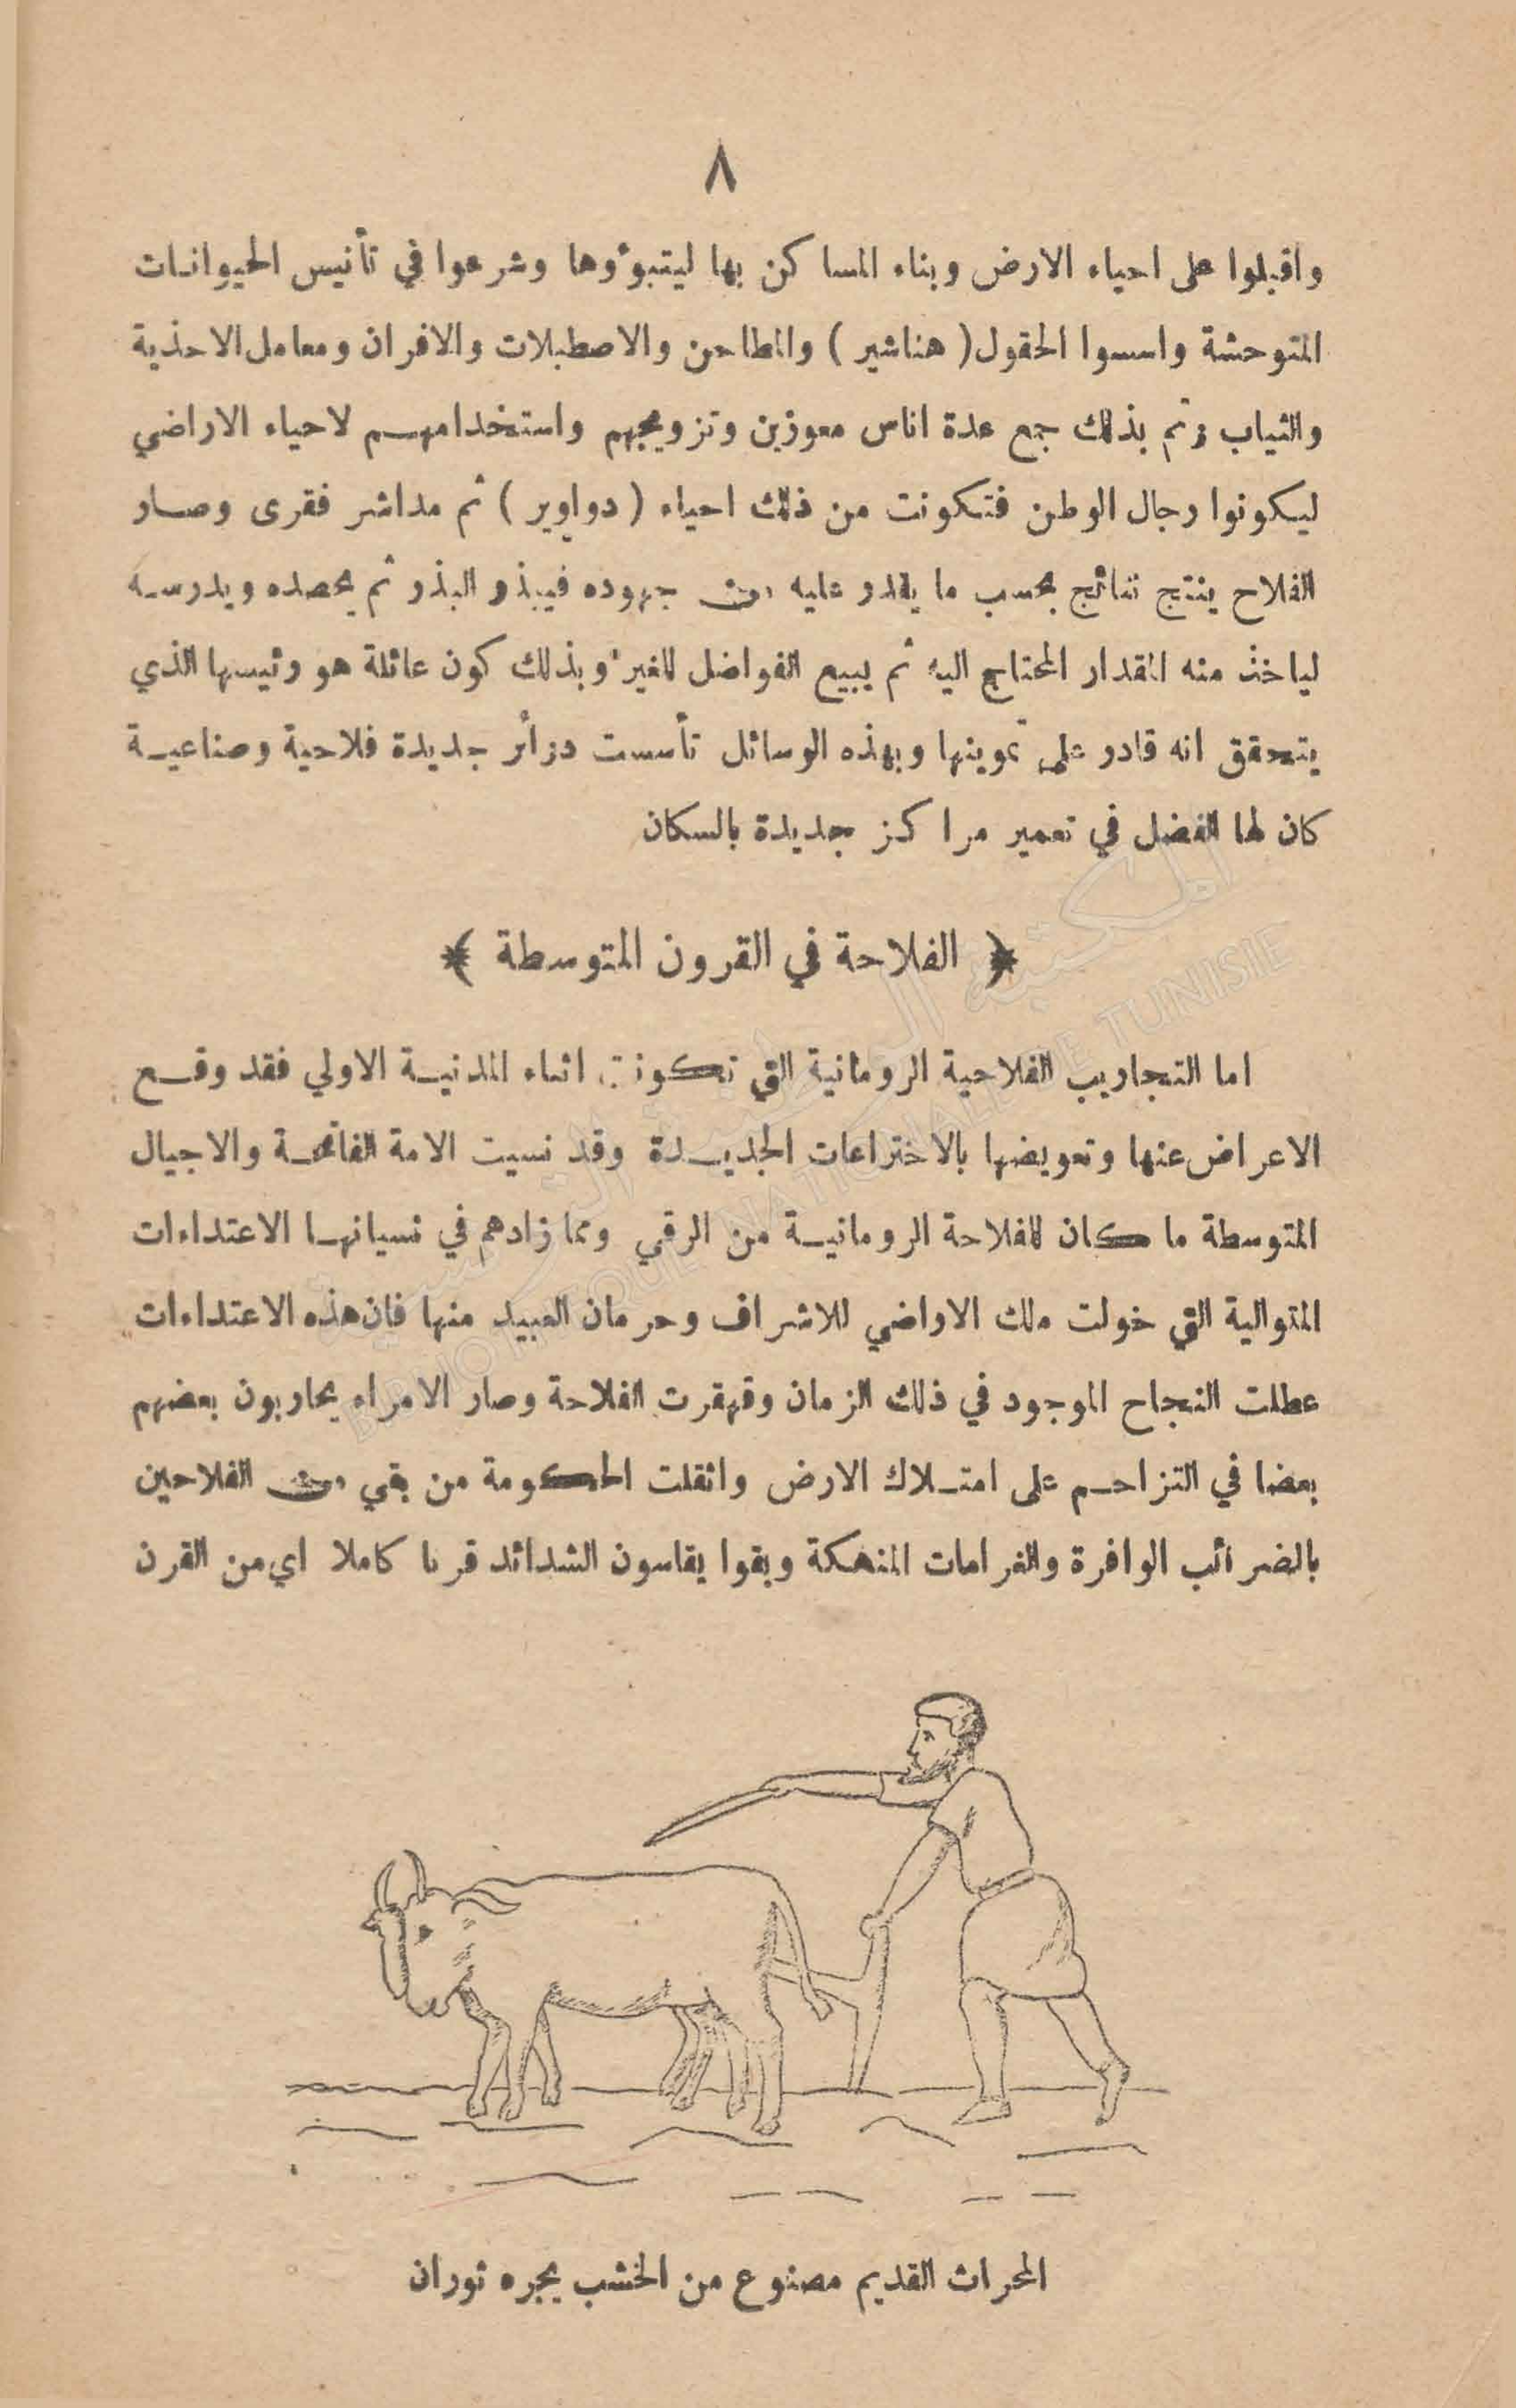 ٨
واقبلوا على احياء الارض وبناء المساكن بها ليتبوؤوها وشرعوا في تأنيس الحيوانات
المتوحشة واسسوا الحقول ( هناشير ) والمطاحن والاصطبلات والافران ومعامل الاحذية
والثياب وتم بذلك جمع عدة اناس معوزين وتزويجهم واستخدامهم لاحياء الاراضي
ليكونوا رجال الوطن فتكونت من ذلك احياء ( دواوير ) ثم مداشر فقرى وصار
الفلاح ينتج نتائج بحسب ما يقدر عليه من جهوده فيبذر البذر ثم يحصده ويدرسه
لياخذ منه المقدار المحتاج اليه ثم يبيع الفواضل للغير وبذلك كون عائلة هو رئيسها الذي
يتحقق انه قادر على تموينها وبهذه الوسائل تأسست دوائر جديدة فلاحية وصناعية
كان لها الفضل في تعمير مراكز جديدة بالسكان
﴿ الفلاحة في القرون المتوسطة ﴾
اما التجاريب الفلاحية الرومانية التي تكونت اثناء المدنية الاولي فقد وقع
الاعراض عنها وتعويضها بالاختراعات الجديدة وقد نسيت الامة الفاتحة والاجيال
المتوسطة ما كان للفلاحة الرومانية من الرقي ومما زادهم في نسيانها الاعتداءات
المتوالية التي خولت ملك الاراضي للاشراف وحرمان العبيد منها فان هذه الاعتداءات
عطلت النجاح الموجود في ذلك الزمان وقهقرت الفلاحة وصار الامراء يحاربون بعضهم
بعضا في التزاحم على امتلاك الارض واثقلت الحكومة من بقي من الفلاحين
بالضرائب الوافرة والغرامات المنهكة وبقوا يقاسون الشدائد قرنا كاملا اي من القرن
المحراث القديم مصنوع من الخشب يجره ثوران